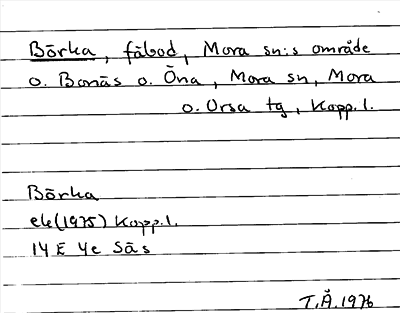 Börka, fäbod, Mora sn:s område
o. Bonäs o. Öna, Mora sn, Mora
o. Orsa tg, Kopp. l.
Börka
ek (1975) Kopp. l.
14 E 4e Säs
T.Å. 1976